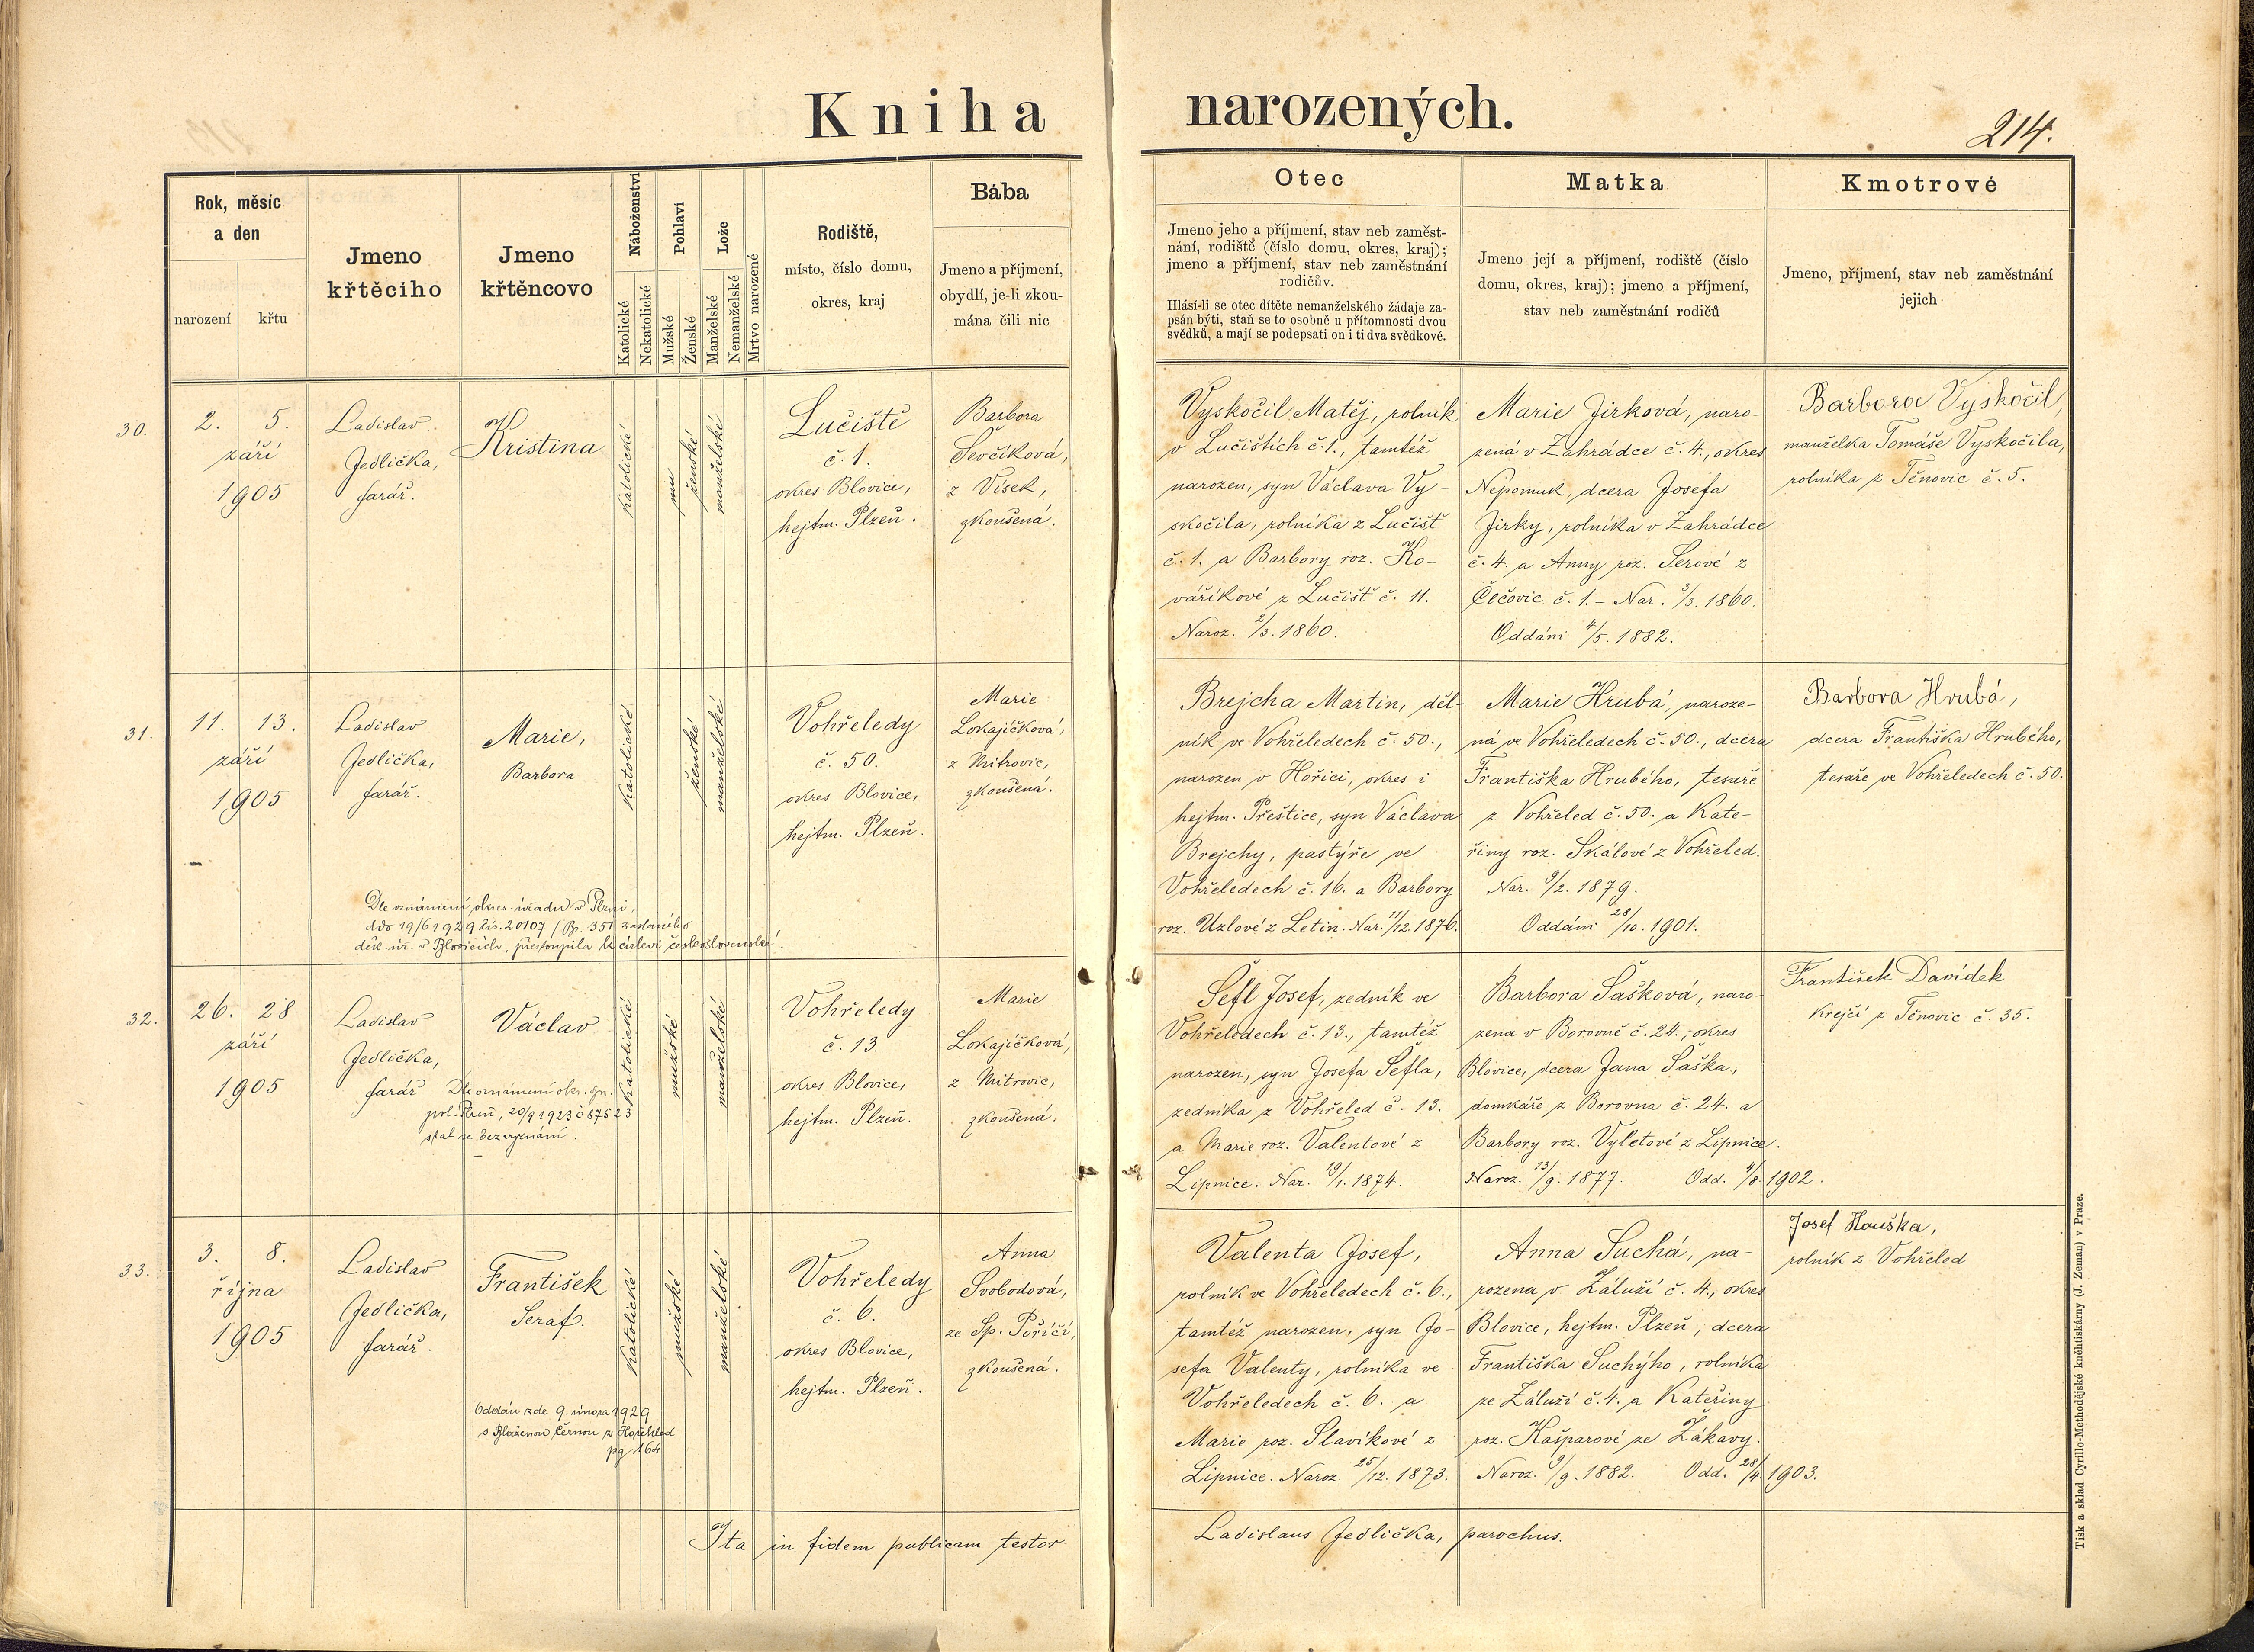 Kniha narozených.
214.
Rok, měsíc
a den
narození
křtu
Jmeno
křtěcího
Jmeno
křtěncovo
Náboženství
Katolické
Nekatolické
Pohlaví
Mužské
Ženské
Lože
Manželské
Nemanželské
Mrtvo narozené
Rodiště,
místo, číslo domu,
okres, kraj
Bába
Jmeno a příjmení,
obydlí, je-li zkou-
mána čili nic
Otec
Jmeno jeho a příjmení, stav neb zaměst-
nání, rodiště (číslo domu, okres, kraj);
jmeno a příjmení, stav neb zaměstnání
rodičův.
Hlásí-li se otec dítěte nemanželského žádaje za-
psán býti, staň se to osobně u přítomnosti dvou
svědků, a mají se podepsati on i ti dva svědkové.
Matka
Jmeno její a příjmení, rodiště (číslo
domu, okres, kraj); jmeno a příjmení,
stav neb zaměstnání rodičů
Kmotrové
Jmeno, příjmení, stav neb zaměstnání
jejich
30.
2. 5.
září
1905
Ladislav
Jedlička,
farář.
Kristina
katolické
mu
ženské
manželské
Lučiště
č. 1.
okres Blovice,
hejtm. Plzeň.
Barbora
Ševčíková,
z Vísek,
zkoušená.
Vyskočil Matěj, rolník
v Lučištích č. 1., tamtéž
narozen, syn Václava Vy-
skočila, rolníka z Lučišť
č. 1. a Barbory roz. Ko-
vaříkové z Lučišť č. 11.
Naroz. 2/3. 1860.
Marie Jirková, naro-
zená v Zahrádce č. 4., okres
Nepomuk, dcera Josefa
Jirky, rolníka v Zahrádce
č. 4. a Anny roz. Serové z
Čečovic č. 1. – Nar. 3/3. 1860.
Oddáni 4/5. 1882.
Barbora Vyskočil,
manželka Tomáše Vyskočila,
rolníka z Těnovic č. 5.
31.
11. 13.
září
1905
Ladislav
Jedlička,
farář.
Marie,
Barbora
katolické
ženské
manželské
Vohřeledy
č. 50.
okres Blovice,
hejtm. Plzeň.
Marie
Lokajíčková,
z Mitrovic,
zkoušená.
Dle oznámení okres. úřadu v Plzni,
ddo 19/6 1929 čís. 20107 / Př. 351 zaslaného
děk. úř. v Blovicích, přestoupila k církvi československé.
Brejcha Martin, děl-
ník ve Vohřeledech č. 50.,
narozen v Hořici, okres i
hejtm. Přeštice, syn Václava
Brejchy, pastýře ve
Vohřeledech č. 16. a Barbory
roz. Uzlové z Letin. Nar. 11/12. 1876.
Marie Hrubá, naroze-
ná ve Vohřeledech č. 50., dcera
Františka Hrubého, tesaře
z Vohřeled č. 50. a Kate-
řiny roz. Skálové z Vohřeled.
Nar. 9/2. 1879.
Oddáni 28/10. 1901.
Barbora Hrubá,
dcera Františka Hrubého,
tesaře ve Vohřeledech č. 50.
32.
26. 28
září
1905
Ladislav
Jedlička,
farář
Václav
katolické
mužské
manželské
Vohřeledy
č. 13.
okres Blovice,
hejtm. Plzeň.
Marie
Lokajíčková,
z Mitrovic,
zkoušená.
Dle oznámení okr. sp.
pol. Plzeň, 20/9 1923 č 87523
stal se bez vyznání.
Šefl Josef, zedník ve
Vohřeledech č. 13., tamtéž
narozen, syn Josefa Šefla,
zedníka z Vohřeled č. 13.
a Marie roz. Valentové z
Lipnice. Nar. 19/1. 1874.
Barbora Šašková, naro-
zena v Borovně č. 24., okres
Blovice, dcera Jana Šaška,
domkáře z Borovna č. 24. a
Barbory roz. Vyletové z Lipnice.
Naroz. 13/9. 1877. Odd. 4/8. 1902.
František Davídek
krejčí z Těnovic č. 35.
33.
3. 8.
října
1905
Ladislav
Jedlička,
farář.
František
Seraf.
katolické
mužské
manželské
Vohřeledy
č. 6.
okres Blovice,
hejtm. Plzeň.
Anna
Svobodová,
ze Sp. Poříčí,
zkoušená.
Oddán zde 9. února 1929
s Blaženou Černou z Hořehled
pg 164
Valenta Josef,
rolník ve Vohřeledech č. 6.,
tamtéž narozen, syn Jo-
sefa Valenty, rolníka ve
Vohřeledech č. 6. a
Marie roz. Slavíkové z
Lipnice. Naroz. 25/12. 1873.
Anna Suchá, na-
rozena v Záluží č. 4., okres
Blovice, hejtm. Plzeň, dcera
Františka Suchýho, rolníka
ze Záluží č. 4. a Kateřiny
roz. Kašparové ze Žákavy.
Naroz. 9/9. 1882. Odd. 28/4. 1903.
Josef Houška,
rolník z Vohřeled
Ita in fidem publicam testor
Ladislaus Jedlička, parochus.
Tisk a sklad Cyrillo-Methodějské knihtiskárny (J. Zeman) v Praze.